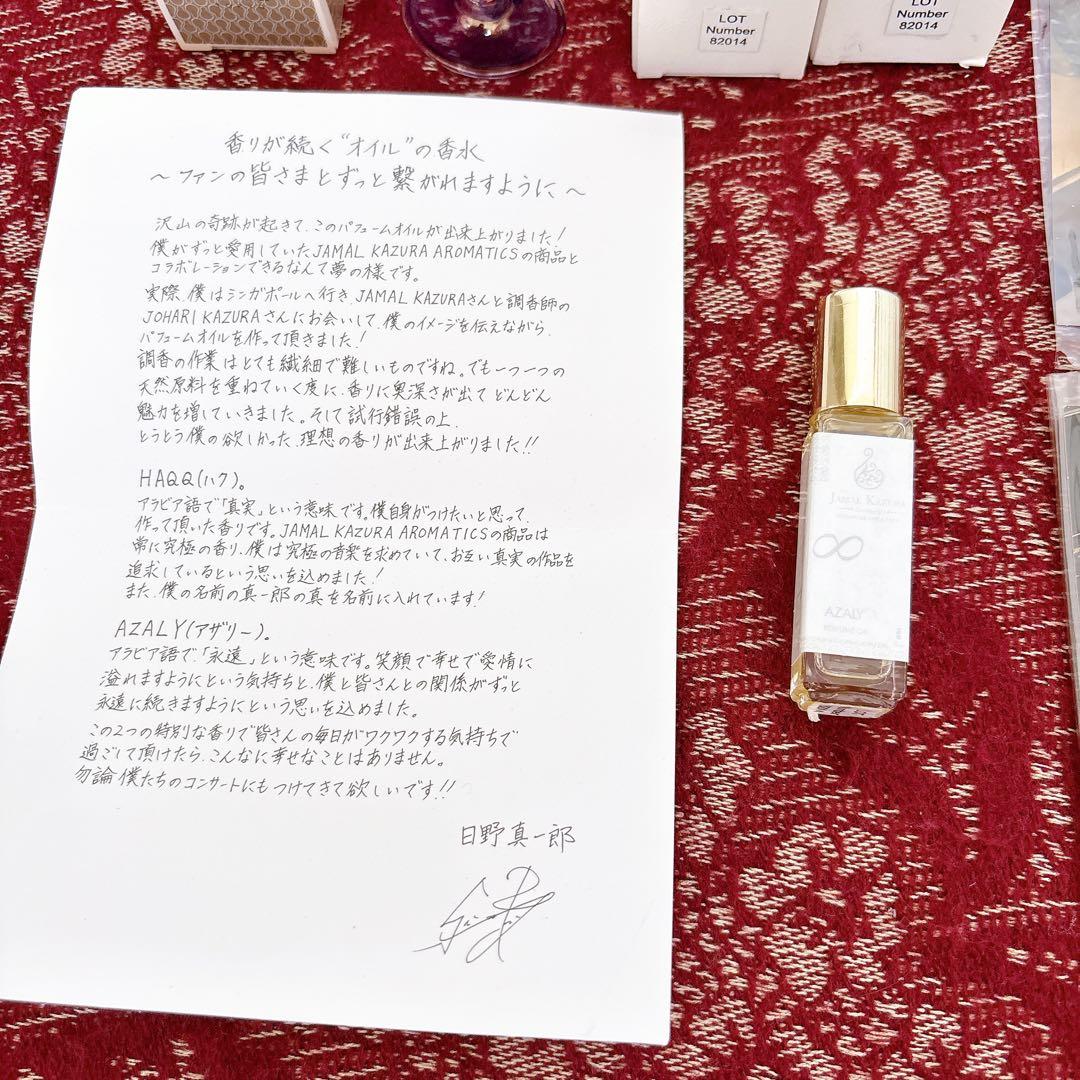 LOT
Number
82014
LOT
Number
82014
香りが続く“オイル”の香水
～ファンの皆さまとずっと繋がれますように～
沢山の奇跡が起きて、このパフュームオイルが出来上がりました！
僕がずっと愛用していたJAMAL KAZURA AROMATICSの商品と
コラボレーションできるなんて夢の様です。
実際、僕はシンガポールへ行き、JAMAL KAZURAさんと調香師の
JOHARI KAZURAさんにお会いして、僕のイメージを伝えながら、
パフュームオイルを作って頂きました！
調香の作業はとても繊細で難しいものですね。でも一つ一つの
天然原料を重ねていく度に、香りに奥深さが出てどんどん
魅力を増していきました。そして試行錯誤の上、
とうとう僕の欲しかった、理想の香りが出来上がりました!!
HAQQ(ハク)。
アラビア語で「真実」という意味です。僕自身がつけたいと思って、
作って頂いた香りです。JAMAL KAZURA AROMATICSの商品は
常に究極の香り、僕は究極の音楽を求めていて、お互い真実の作品を
追求しているという思いを込めました！
また、僕の名前の真一郎の真を名前に入れています！
AZALY(アザリー)。
アラビア語で、「永遠」という意味です。笑顔で幸せで愛情に
溢れますようにという気持ちと、僕と皆さんとの関係がずっと
永遠に続きますようにという思いを込めました。
この2つの特別な香りで皆さんの毎日がワクワクする気持ちで
過ごして頂けたら、こんなに幸せなことはありません。
勿論、僕たちのコンサートにもつけてきて欲しいです!!
日野真一郎
JAMAL KAZURA
∞
AZALY
PERFUME OIL